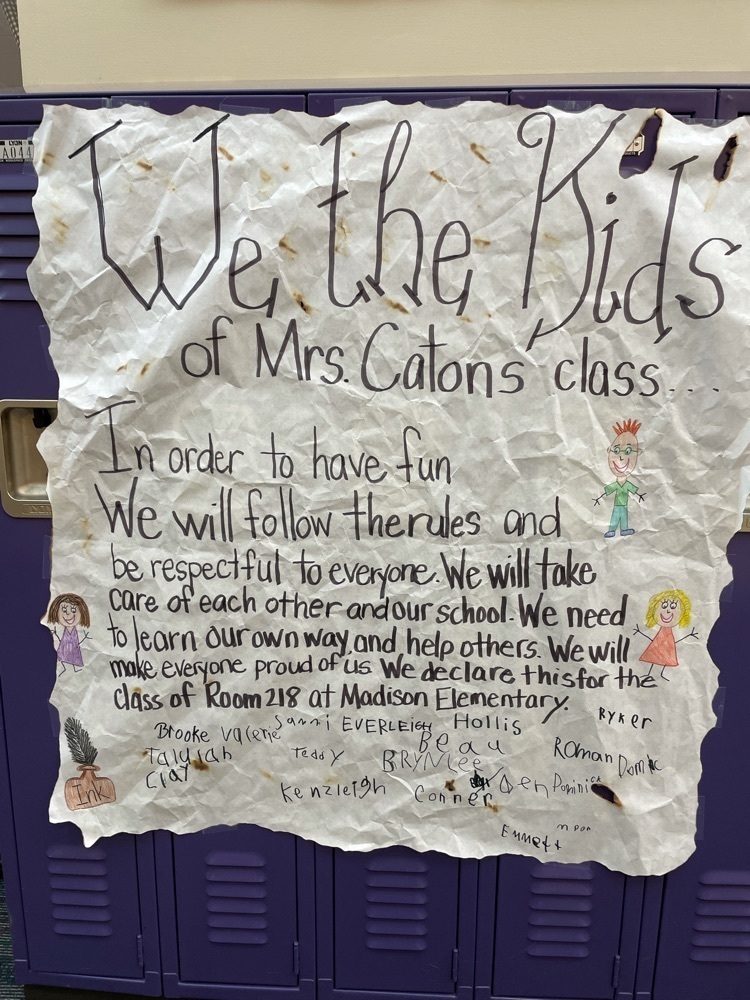 We the Kids
of Mrs. Catons' class...
In order to have fun
We will follow the rules and
be respectful to everyone. We will take
care of each other and our school. We need
to learn our own way and help others. We will
make everyone proud of us We declare this for the
class of Room 218 at Madison Elementary.
Brooke Valerie Sanni EVERLEIGH Hollis Ryker
Talulah Teddy Beau Roman
Clay BRYNLee
Kenzleigh Conner Dominick
Emmett
Ink
LYON
A044